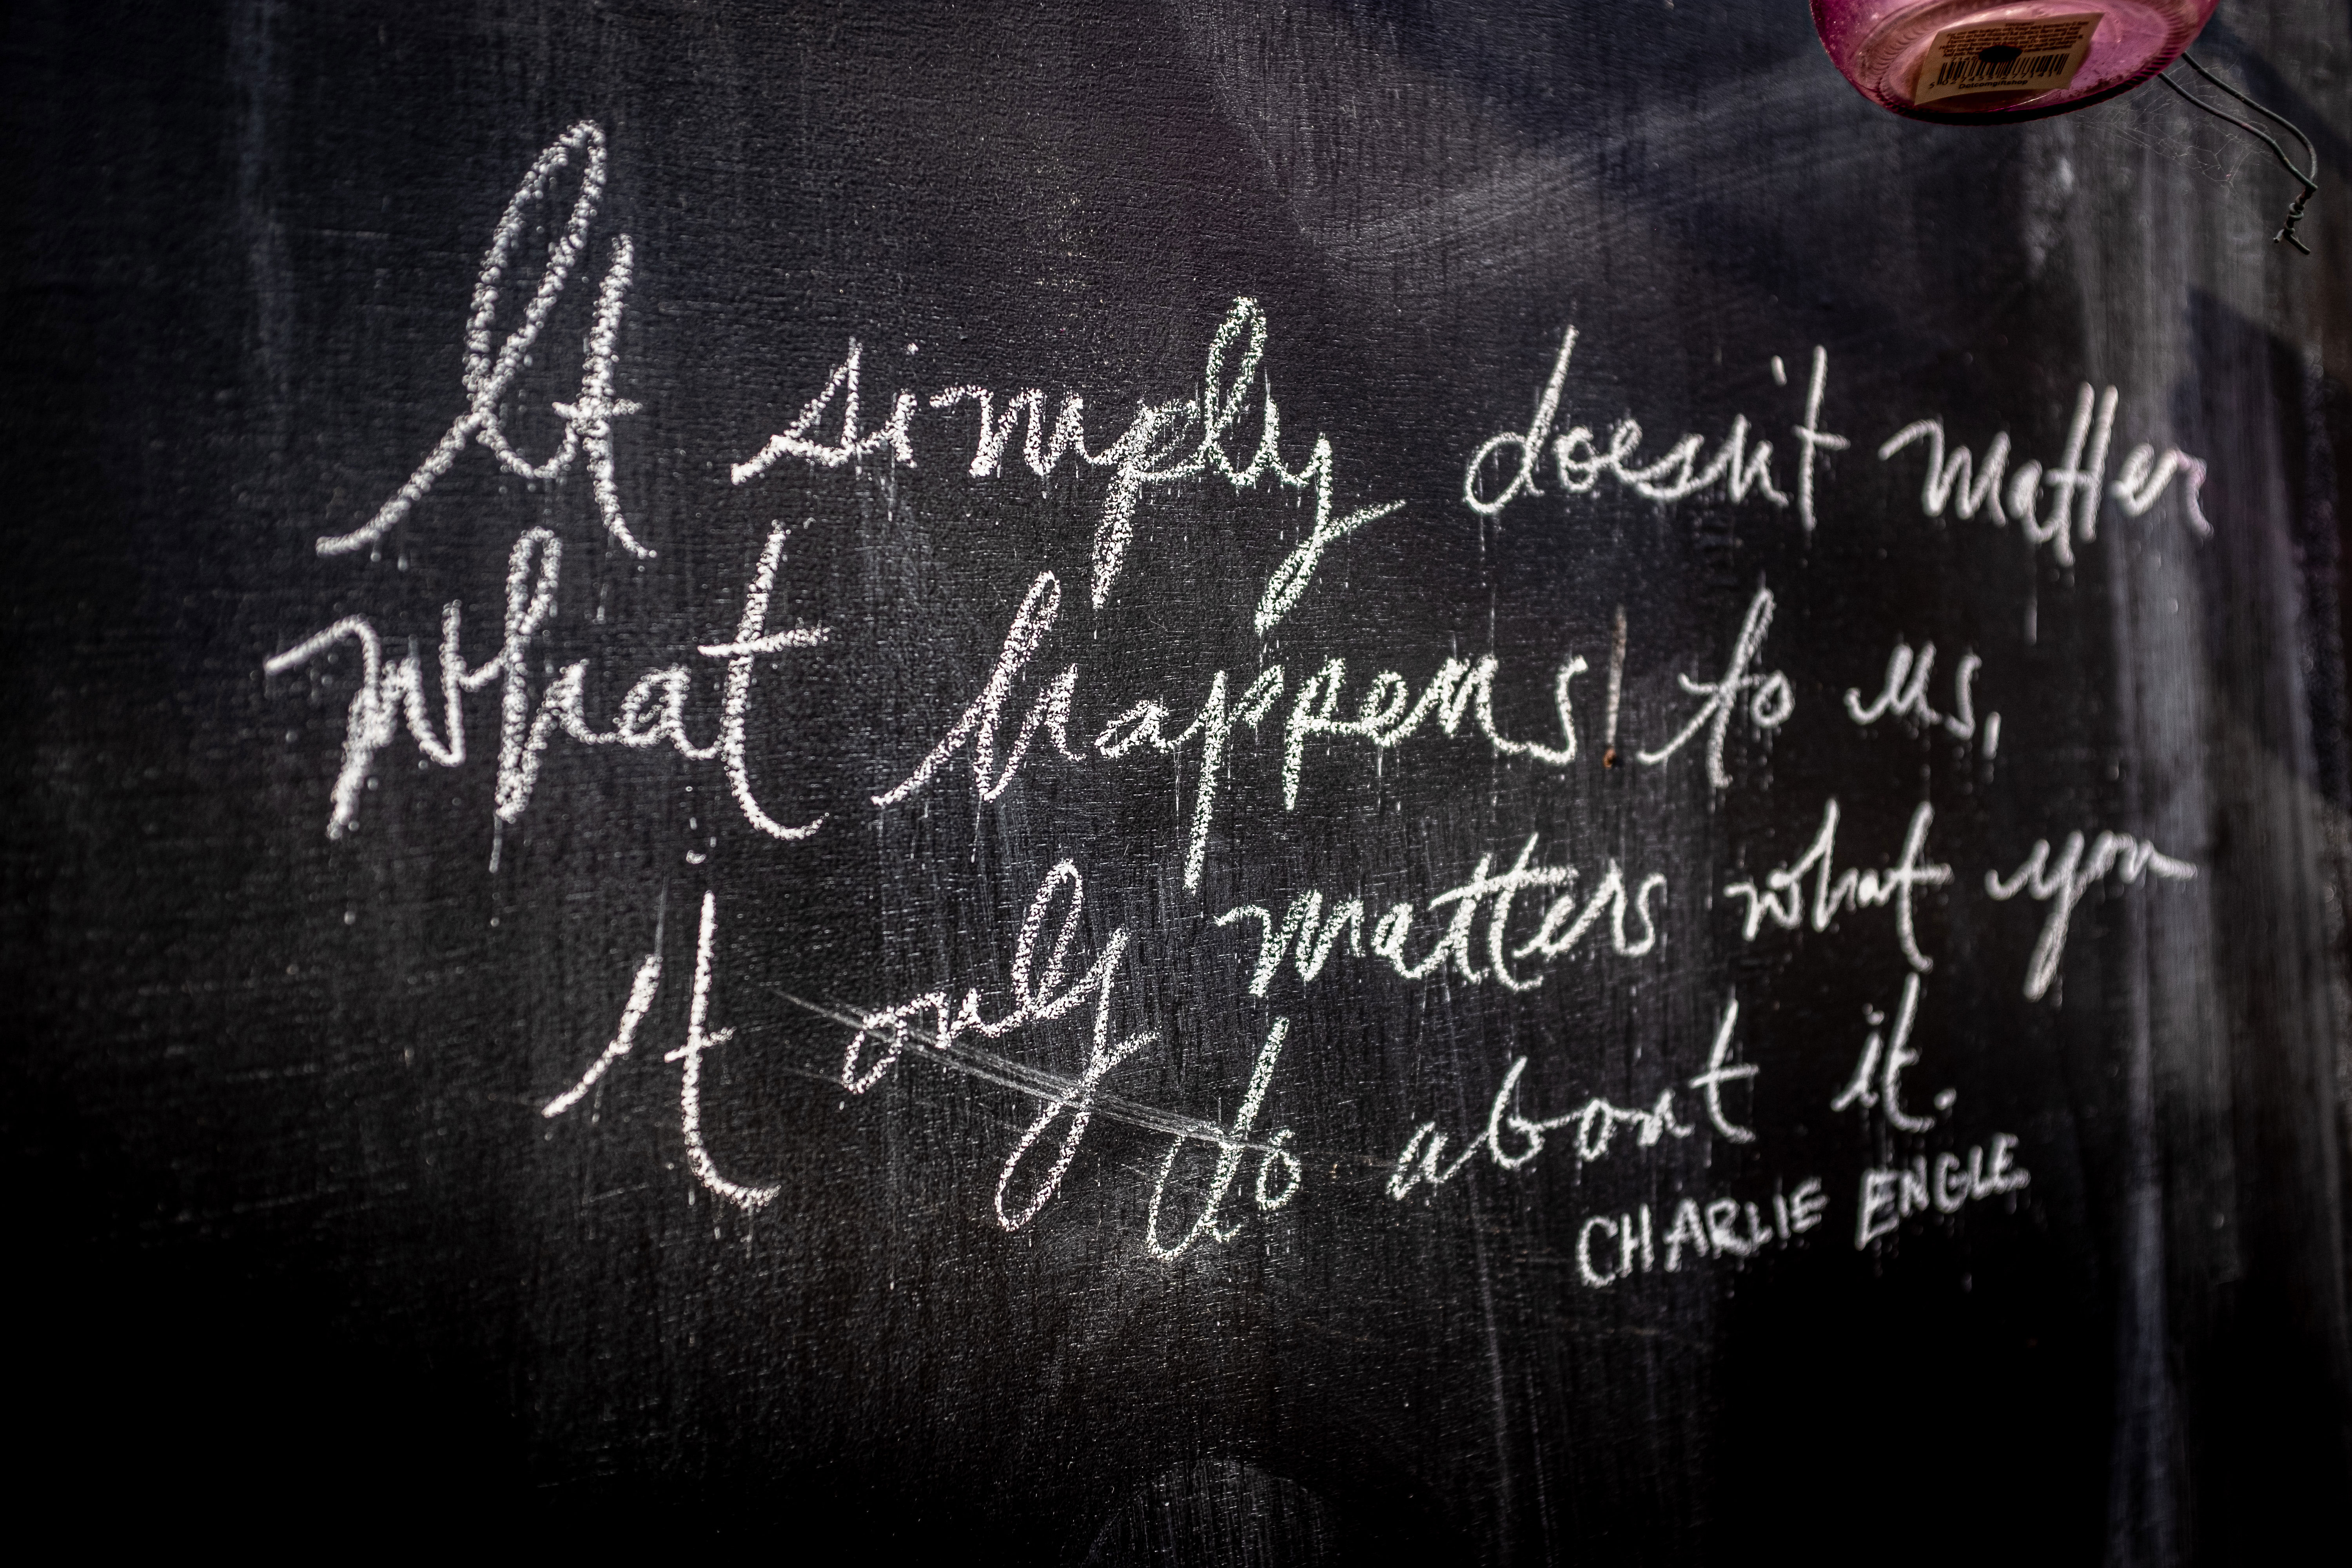 It simply doesn't matter
what happens to us,
it only matters what you
do about it.
CHARLIE ENGLE